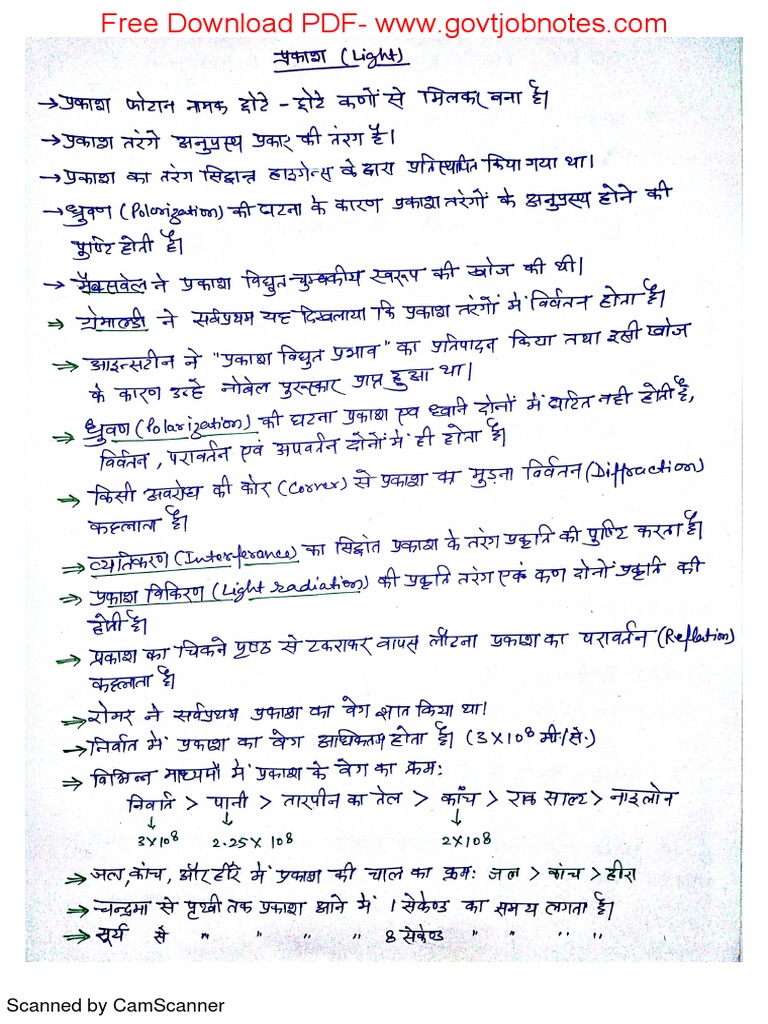 Free Download PDF- www.govtjobnotes.com
प्रकाश (Light)
→ प्रकाश फोटान नामक छोटे - छोटे कणों से मिलकर बना है।
→ प्रकाश तरंगे अनुप्रस्थ प्रकार की तरंग है।
→ प्रकाश का तरंग सिद्धान्त हाइगेन्स के द्वारा प्रतिस्थापित किया गया था।
→ ध्रुवण (Polarization) की घटना के कारण प्रकाश तरंगों के अनुप्रस्थ होने की
पुष्टि होती है।
→ मैक्सवेल ने प्रकाश विद्युत-चुम्बकीय स्वरूप की खोज की थी।
⇒ ग्रेमाल्डी ने सर्वप्रथम यह दिखलाया कि प्रकाश तरंगों में विर्वतन होता है।
⇒ आइन्सटीन ने "प्रकाश विद्युत प्रभाव" का प्रतिपादन किया तथा इसी खोज
के कारण उन्हे नोबेल पुरुस्कार प्राप्त हुआ था।
⇒ ध्रुवण (Polarization) की घटना प्रकाश एंव ध्वनि दोनों में घटित नही होती है,
विर्वतन, परावर्तन एवं अपवर्तन दोनों में ही होता है।
⇒ किसी अवरोध की कोर (Corner) से प्रकाश का मुड़ना विर्वतन (Diffraction)
कहलाता है।
⇒ व्यतिकरण (Interferance) का सिद्धांत प्रकाश के तरंग प्रकृति की पुष्टि करता है।
⇒ प्रकाश विकिरण (Light radiation) की प्रकृति तरंग एंव कण दोनों प्रकृति की
होती है।
⇒ प्रकाश का चिकने पृष्ठ से टकराकर वापस लौटना प्रकाश का परावर्तन (Reflation)
कहलाता है।
⇒ रोमर ने सर्वप्रथम प्रकाश का वेग ज्ञात किया था।
→ निर्वात में प्रकाश का वेग अधिकतम होता है। (3×10⁸ मी/से.)
⇒ विभिन्न माध्यमों में प्रकाश के वेग का क्रम:
निर्वात > पानी > तारपीन का तेल > काँच > राक साल्ट > नाइलोन
↓ ↓ ↓
3×10⁸ 2.25×10⁸ 2×10⁸
⇒ जल, कांच, और हीरे में प्रकाश की चाल का क्रम: जल > कांच > हीरा
⇒ चन्द्रमा से पृथ्वी तक प्रकाश आने में 1 सेकेण्ड का समय लगता है।
⇒ सूर्य से " " " " 8 सेकेण्ड " " " "
Scanned by CamScanner